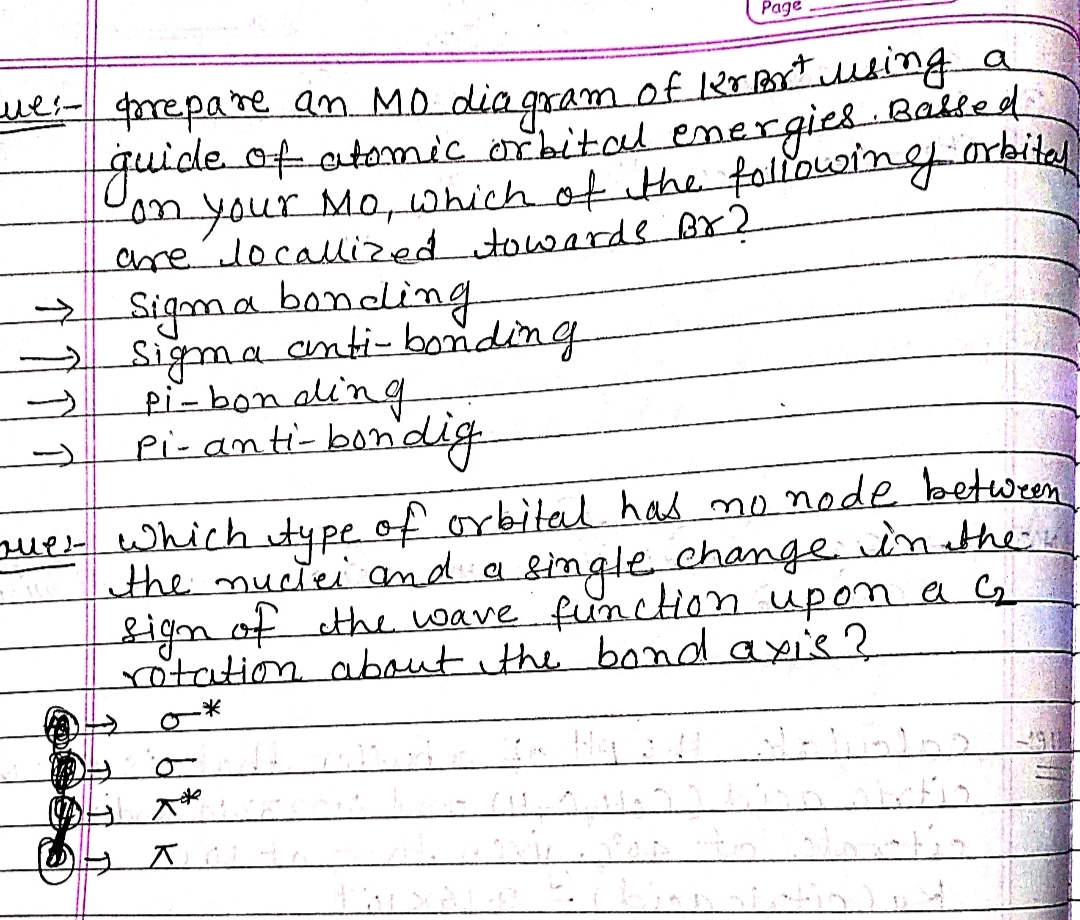 Page
ue:- prepare an MO diagram of KrBr+ using a
guide of atomic orbital energies. Bassed
on your MO, which of the following orbital
are locallized towards Br?
→ Sigma bonding
→ Sigma anti-bonding
→ Pi-bonding
→ Pi-anti-bondig
oue:- Which type of orbital has no node between
the nuclei and a single change in the
sign of the wave function upon a C2
rotation about the bond axis?
→ σ*
→ σ
→ π*
→ π